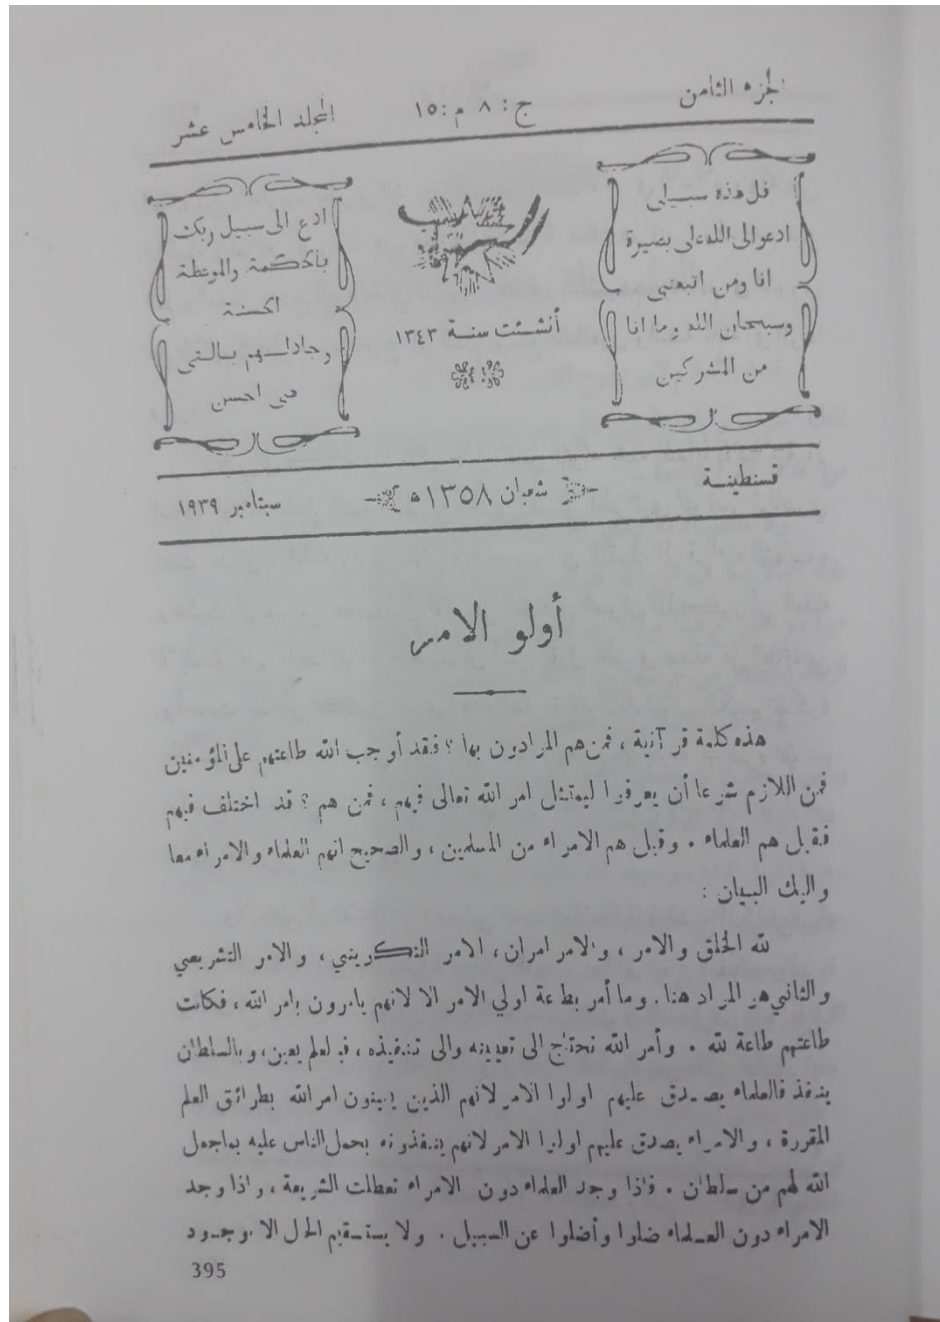 الجزء الثامن
ج : ٨ م : ١٥
المجلد الخامس عشر
قل هذه سبيلي
ادعو الى الله على بصيرة
انا ومن اتبعني
وسبحان الله وما انا
من المشركين
أنشئت سنة ١٣٤٣
ادع الى سبيل ربك
بالحكمة والموعظة
الحسنة
وجادلهم بالتي
هي احسن
قسنطينة
شعبان ١٣٥٨ هـ
سبتامبر ١٩٣٩
أولو الامر
هذه كلمة قرآنية ، فمن هم المرادون بها ؟ فقد أوجب الله طاعتهم على المؤمنين
فمن اللازم شرعا أن يعرفوا ليمتثل امر الله تعالى فيهم ، فمن هم ؟ قد اختلف فيهم
فقيل هم العلماء . وقيل هم الامراء من المسلمين ، والصحيح انهم العلماء والامراء معا
واليك البيان :
لله الخلق والامر ، والامر امران ، الامر التكويني ، والامر التشريعي
والثاني هو المراد هنا . وما أمر بطاعة اولي الامر الا لانهم يامرون بامر الله ، فكانت
طاعتهم طاعة لله . وأمر الله نحتاج الى تعيينه والى تنفيذه ، فبالعلم يعين ، وبالسلطان
ينفذ فالعلماء يصدق عليهم اولوا الامر لانهم الذين يبينون امر الله بطرائق العلم
المقررة ، والامراء يصدق عليهم اولوا الامر لانهم ينفذونه بحمل الناس عليه بما جعل
الله لهم من سلطان . فاذا وجد العلماء دون الامراء تعطلت الشريعة ، واذا وجد
الامراء دون العلماء ضلوا وأضلوا عن السبيل . ولا يستقيم الحال الا بوجود
395